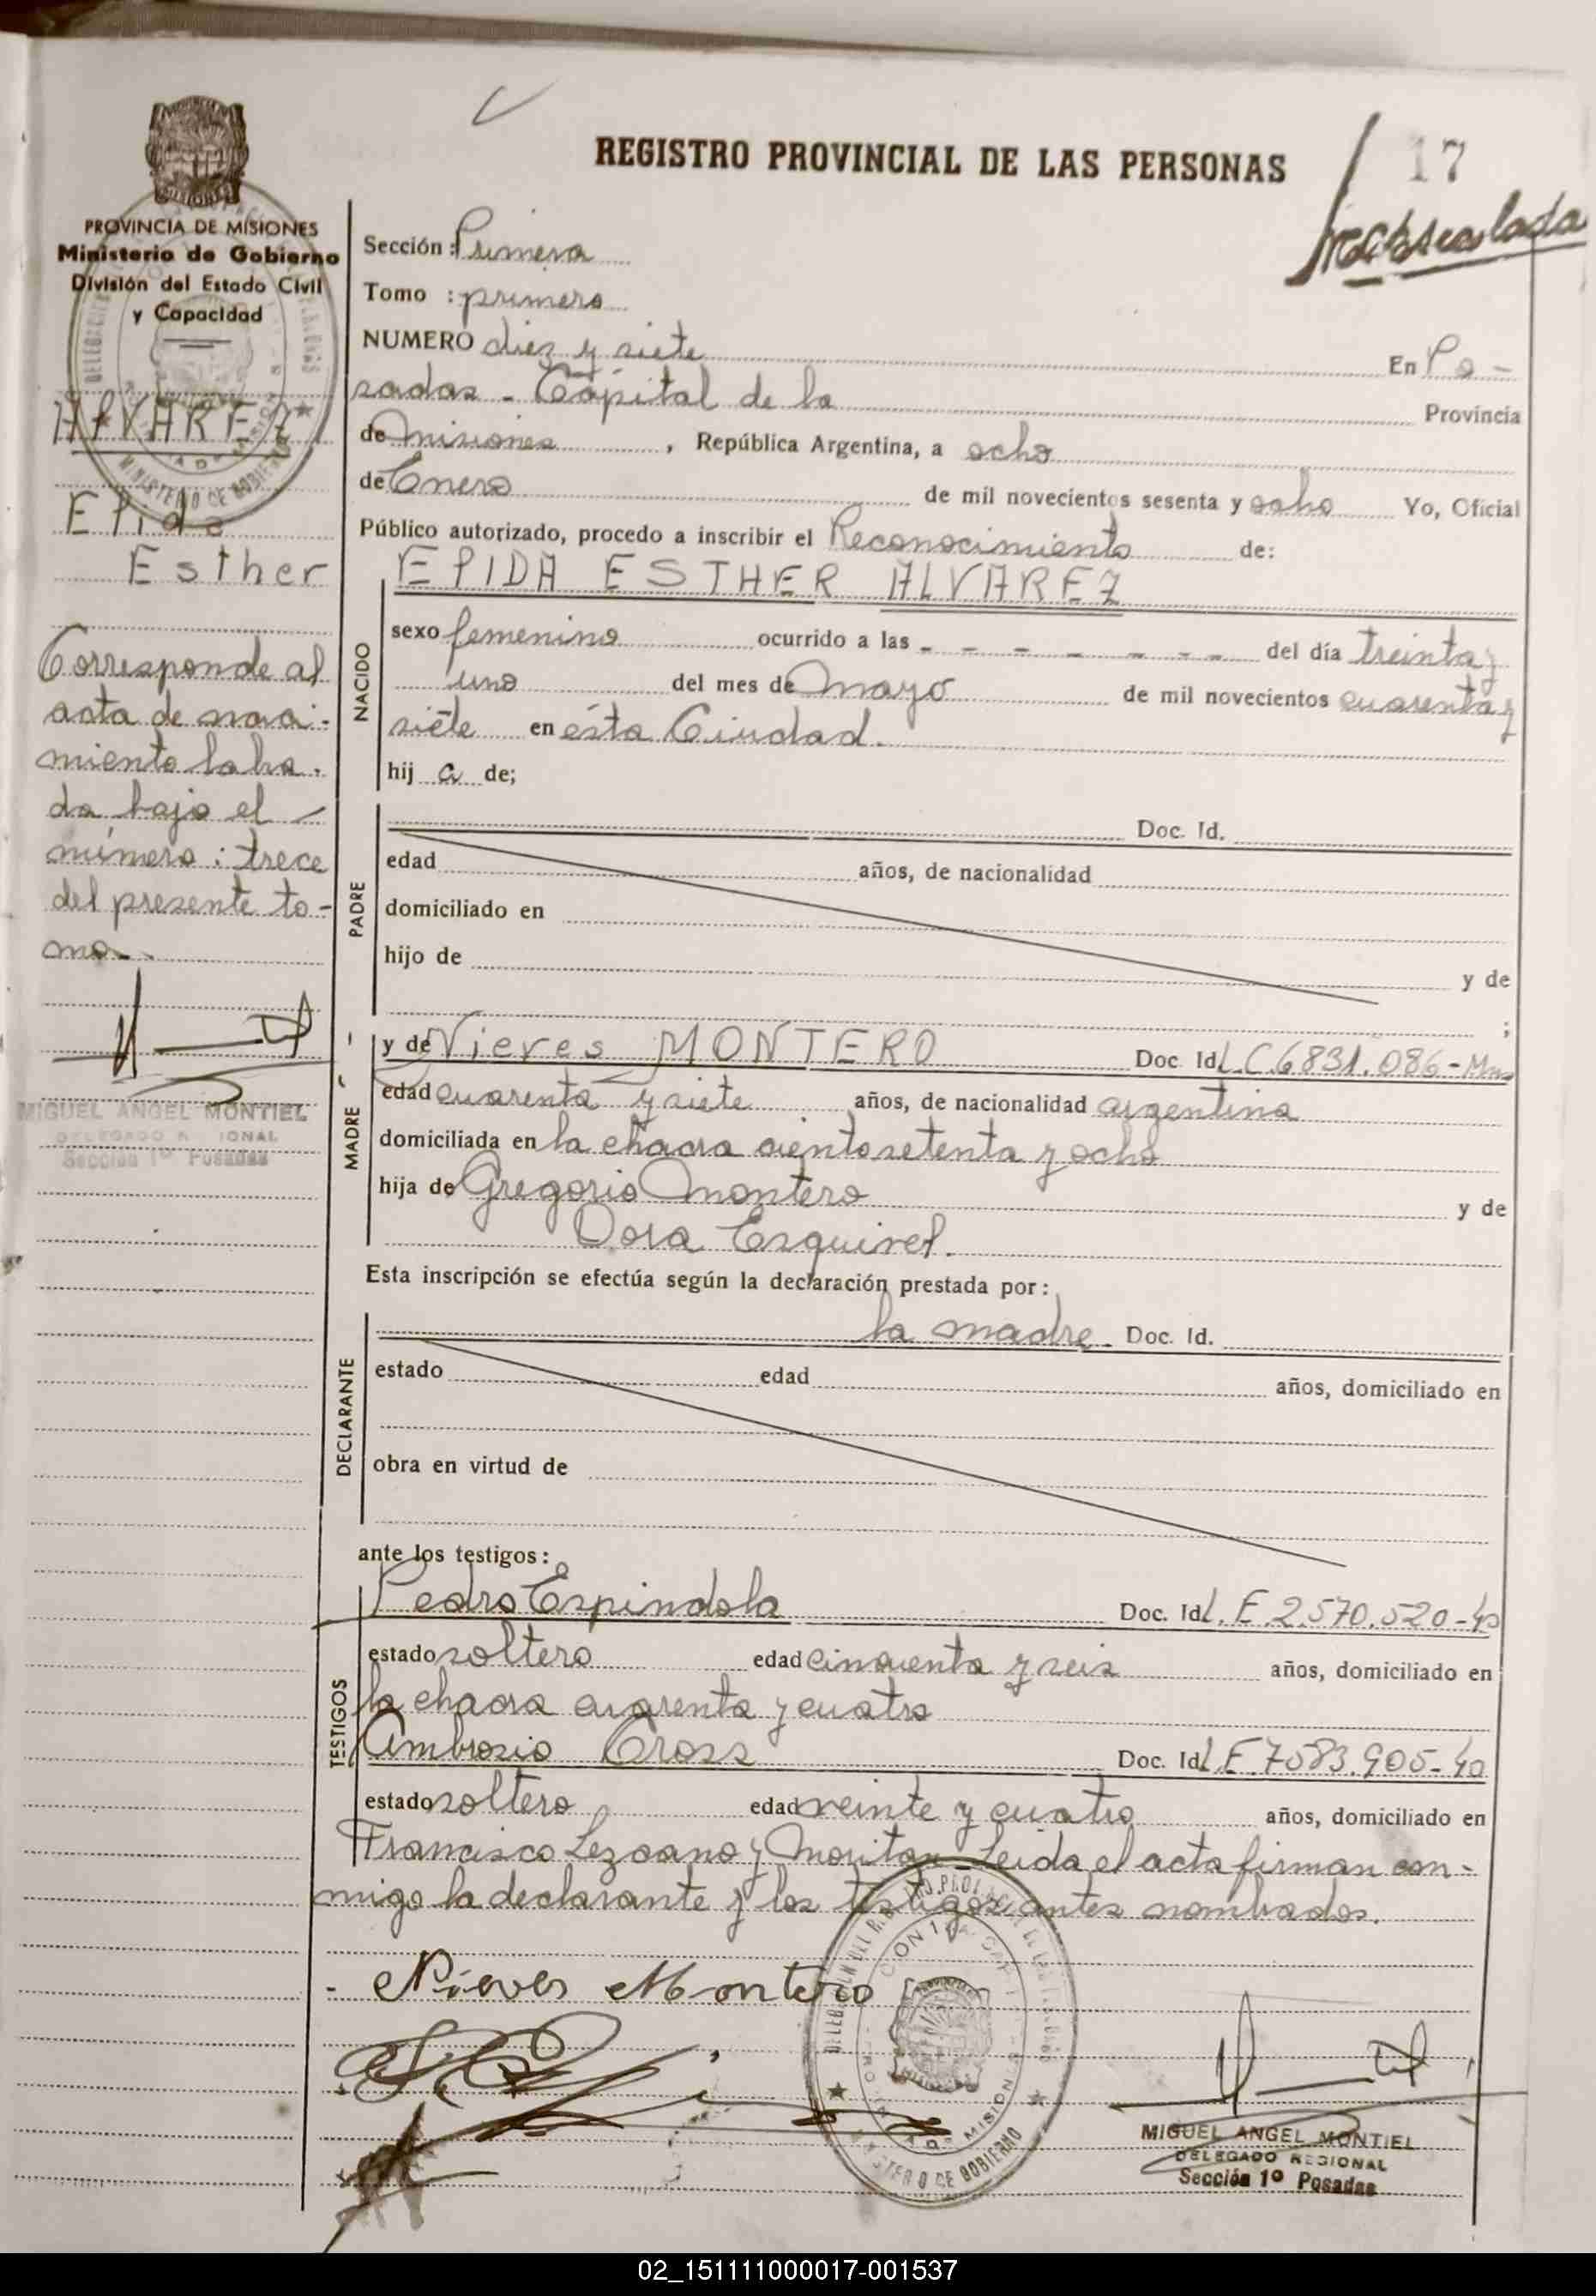 REGISTRO PROVINCIAL DE LAS PERSONAS
17
PROVINCIA DE MISIONES
Ministerio de Gobierno
División del Estado Civil
y Capacidad
ALVAREZ
Elida
Esther
Corresponde al
acta de naci-
miento labra-
da bajo el
número: trece
del presente to-
mo.-
MIGUEL ANGEL MONTIEL
DELEGADO REGIONAL
Sección 1º Posadas
Sección: Primera
Tomo : primero
NUMERO diez y siete En Po-
sadas - Capital de la Provincia
de Misiones , República Argentina, a ocho
de Enero de mil novecientos sesenta y ocho Yo, Oficial
Público autorizado, procedo a inscribir el Reconocimiento de:
ELIDA ESTHER ALVAREZ
NACIDO
sexo femenino ocurrido a las - - - - - - - del día treinta y
uno del mes de Mayo de mil novecientos cuarenta y
siete en ésta Ciudad.
hij a de;
PADRE
Doc. Id.
edad años, de nacionalidad
domiciliado en
hijo de y de
;
MADRE
y de Nieves MONTERO Doc. Id L.C.6831.086-
edad cuarenta y siete años, de nacionalidad argentina
domiciliada en la chacra ciento setenta y ocho
hija de Gregorio Montero y de
Dora Esquivel.
Esta inscripción se efectúa según la declaración prestada por:
DECLARANTE
la madre. Doc. Id.
estado edad años, domiciliado en
obra en virtud de
ante los testigos:
TESTIGOS
Pedro Espindola Doc. Id L.E.2.570.520-
estado soltero edad cincuenta y seis años, domiciliado en
la chacra cuarenta y cuatro
Ambrosio Cross Doc. Id L.E.7583.905-
estado soltero edad veinte y cuatro años, domiciliado en
Francisco Lezcano y Moritan - Leida el acta firman con-
migo la declarante y los testigos antes nombrados.
- Nieves Montero
MINISTERIO DE GOBIERNO
MIGUEL ANGEL MONTIEL
DELEGADO REGIONAL
Sección 1º Posadas
02_151111000017-001537